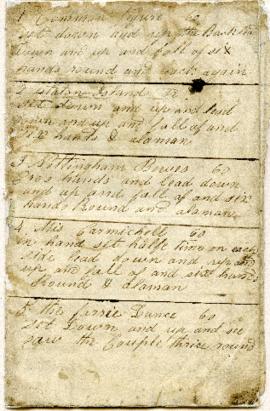 1 Common Jigure 60
set down and up the Back in
Down and up and fall of six
hands round and back again
2 Staton Islands
set down and up and lead
down and up and fall of and
six hands & alaman
3 Nottingham Beuus 60
Cros hands and lead down
and up and fall of and six
hands Round and alaman
4 Mis Carmichell 60
in hand set half time on each
side lead down and up and
up and fall of and six hands
Round & alaman
5 the Jirsie Dance 60
Set Down and up and see
saw the Couple thrice round